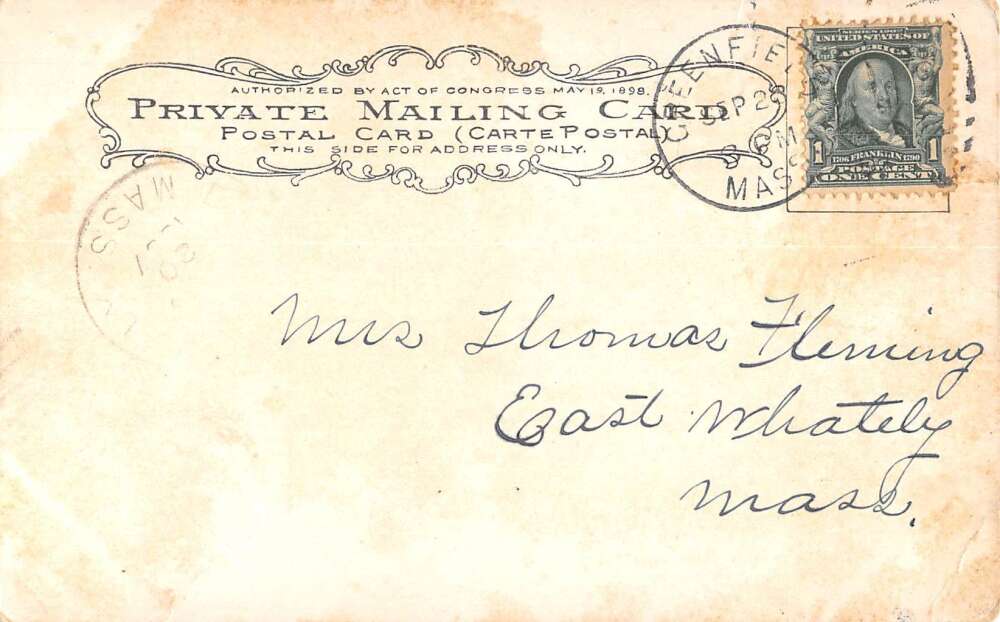 AUTHORIZED BY ACT OF CONGRESS MAY 19, 1898.
PRIVATE MAILING CARD
POSTAL CARD (CARTE POSTAL)
THIS SIDE FOR ADDRESS ONLY.
GREENFIELD
SEP 28
MASS
SERIES 1902
UNITED STATES OF
AMERICA
1 1706 FRANKLIN 1790 1
POSTAGE
ONE CENT
MASS
Mrs Thomas Fleming
East Whately
Mass.